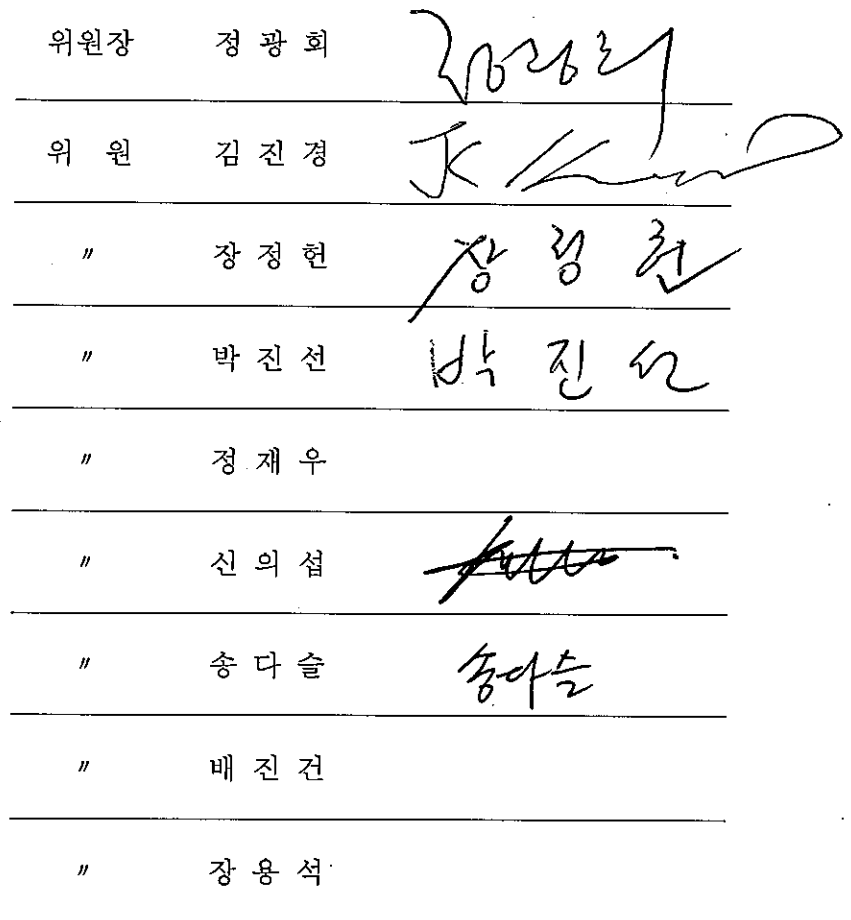 위원장 정광회 정광회
위 원 김진경 JK
〃 장정헌 장정헌
〃 박진선 박진선
〃 정재우
〃 신의섭
〃 송다슬 송다슬
〃 배진건
〃 장용석